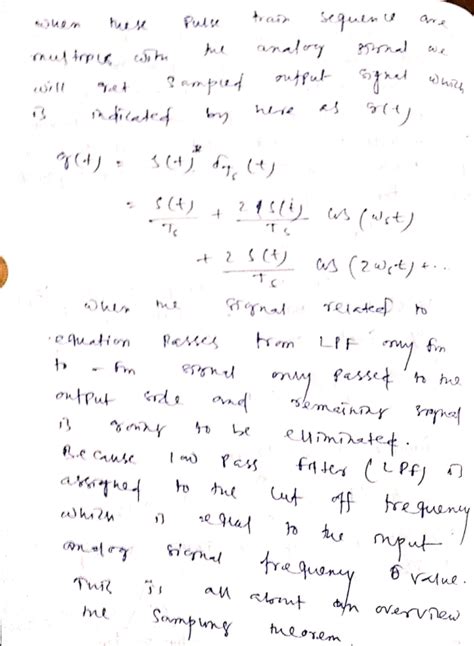 when these pulse train sequence are
multiples with the analog signal we
will get sampled output signal which
is indicated by here as g(t)
g(t) = s(t)* δTs (t)
= s(t)/Ts + 2 s(t)/Ts cos (ωst)
+ 2 s(t)/Ts cos (2ωst) + ...
when the signal related to
equation passes from LPF only fm
to - fm signal only passed to the
output side and remaining signal
is going to be elliminated.
Because low pass filter (LPF) is
assigned to the cut off frequency
which is equal to the input
analog signal frequency value.
This is all about an overview
the sampling theorem.